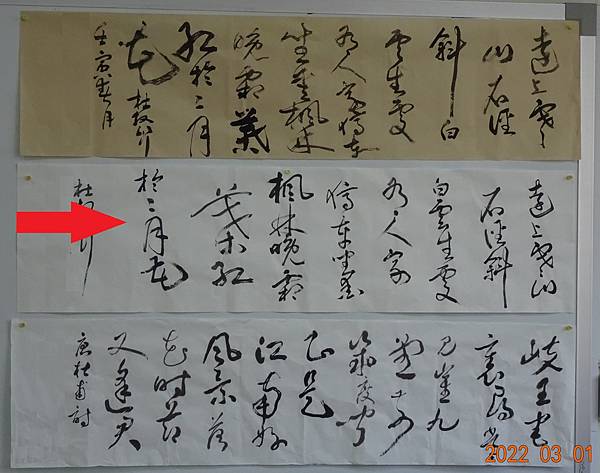 遠上寒
山石徑
斜白
雲生處
有人家停車
坐愛楓林
晚霜葉
紅於二月
花 杜牧詩
壬寅月
遠上寒山
石徑斜
白雲生處
有人家
停車坐愛
楓林晚霜
葉紅
於二月花
杜牧詩
岐王宅
裏尋常
見崔九
堂前
幾度聞
正是
江南好
風景落
花時節
又逢君
唐杜甫詩
2022 03 01